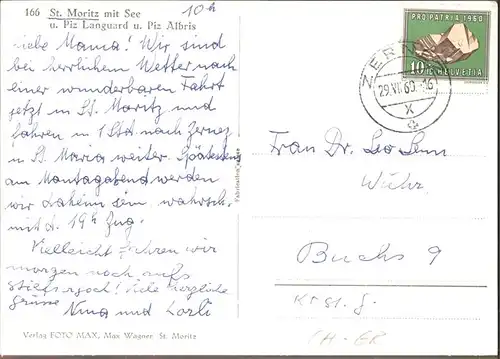 166 St. Moritz mit See
u. Piz Languard u. Piz Albris
10 h
Liebe Mama! Wir sind
bei herrlichem Wetter nach
einer wunderbaren Fahrt
jetzt in St. Moritz und
fahren in 1 Std nach Zernez
u. St. Maria weiter. Spätestens
am Montagabend werden
wir daheim sein, wahrsch.
mit d. 19 h Zug.
Vielleicht fahren wir
morgen noch aufs
Stilfserjoch! Viele herzliche
Grüsse Nina und
Verlag FOTO MAX, Max Wagner, St. Moritz
PRO PATRIA 1960
10 HELVETIA
ZERNEZ
29.VI.60.-16
X
Frau Dr.
Wuhr
Buchs 9
Kt St. G.
CH-GR